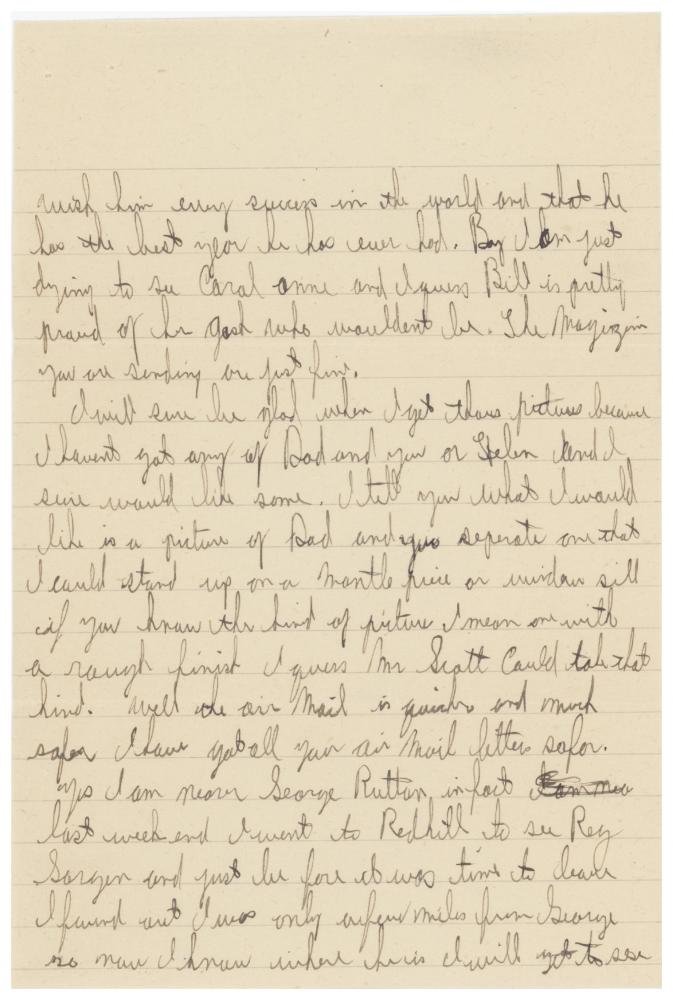 wish him every success in the world and that he
has the best year he has ever had. Boy I am just
dying to see Caral anne and I guess Bill is pretty
proud of her gosh who wouldent be. The Magizgin
you are sending are just fine.
I will sure be glad when I get thous pictures because
I havent got any of Dad and you or Helen and I
sure would like some. I tell you what I would
like is a picture of Dad and you seperate one that
I could stand up on a mantle piece or window sill
if you know the kind of picture I mean one with
a rough finish I guess Mr Scott Could take that
kind. Well the air Mail is quicker and much
safer I have got all your air Mail letters so far.
Yes I am near George Ruttan, in fact
last week end I went to Redhill to see Reg
Sargen and just be fore it was time to leave
I found out I was only a few miles from George
so now I know where he is I will get to see